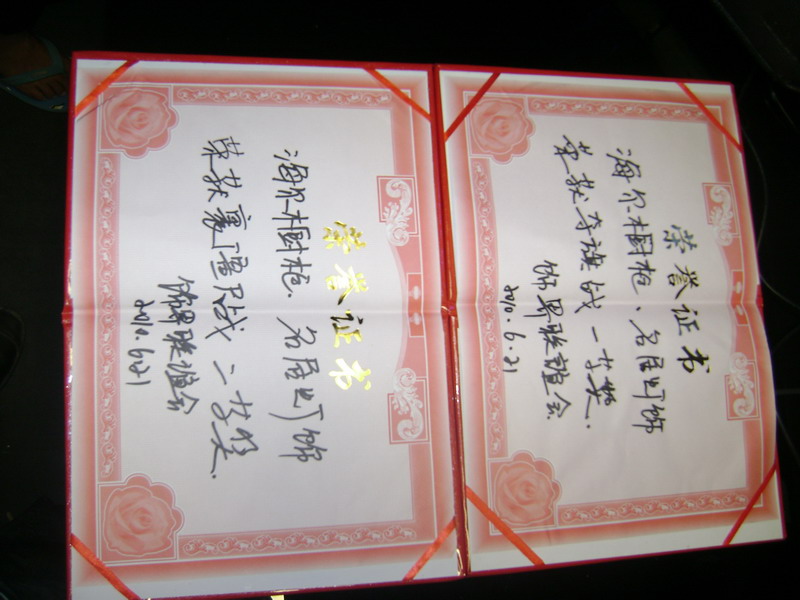 荣誉证书
海尔橱柜、名居灯饰
荣获夺旗战一等奖.
饰界联谊会
2010.6.21
荣誉证书
海尔橱柜.名居灯饰
荣获 战二等奖.
饰界联谊会
2010.6.21